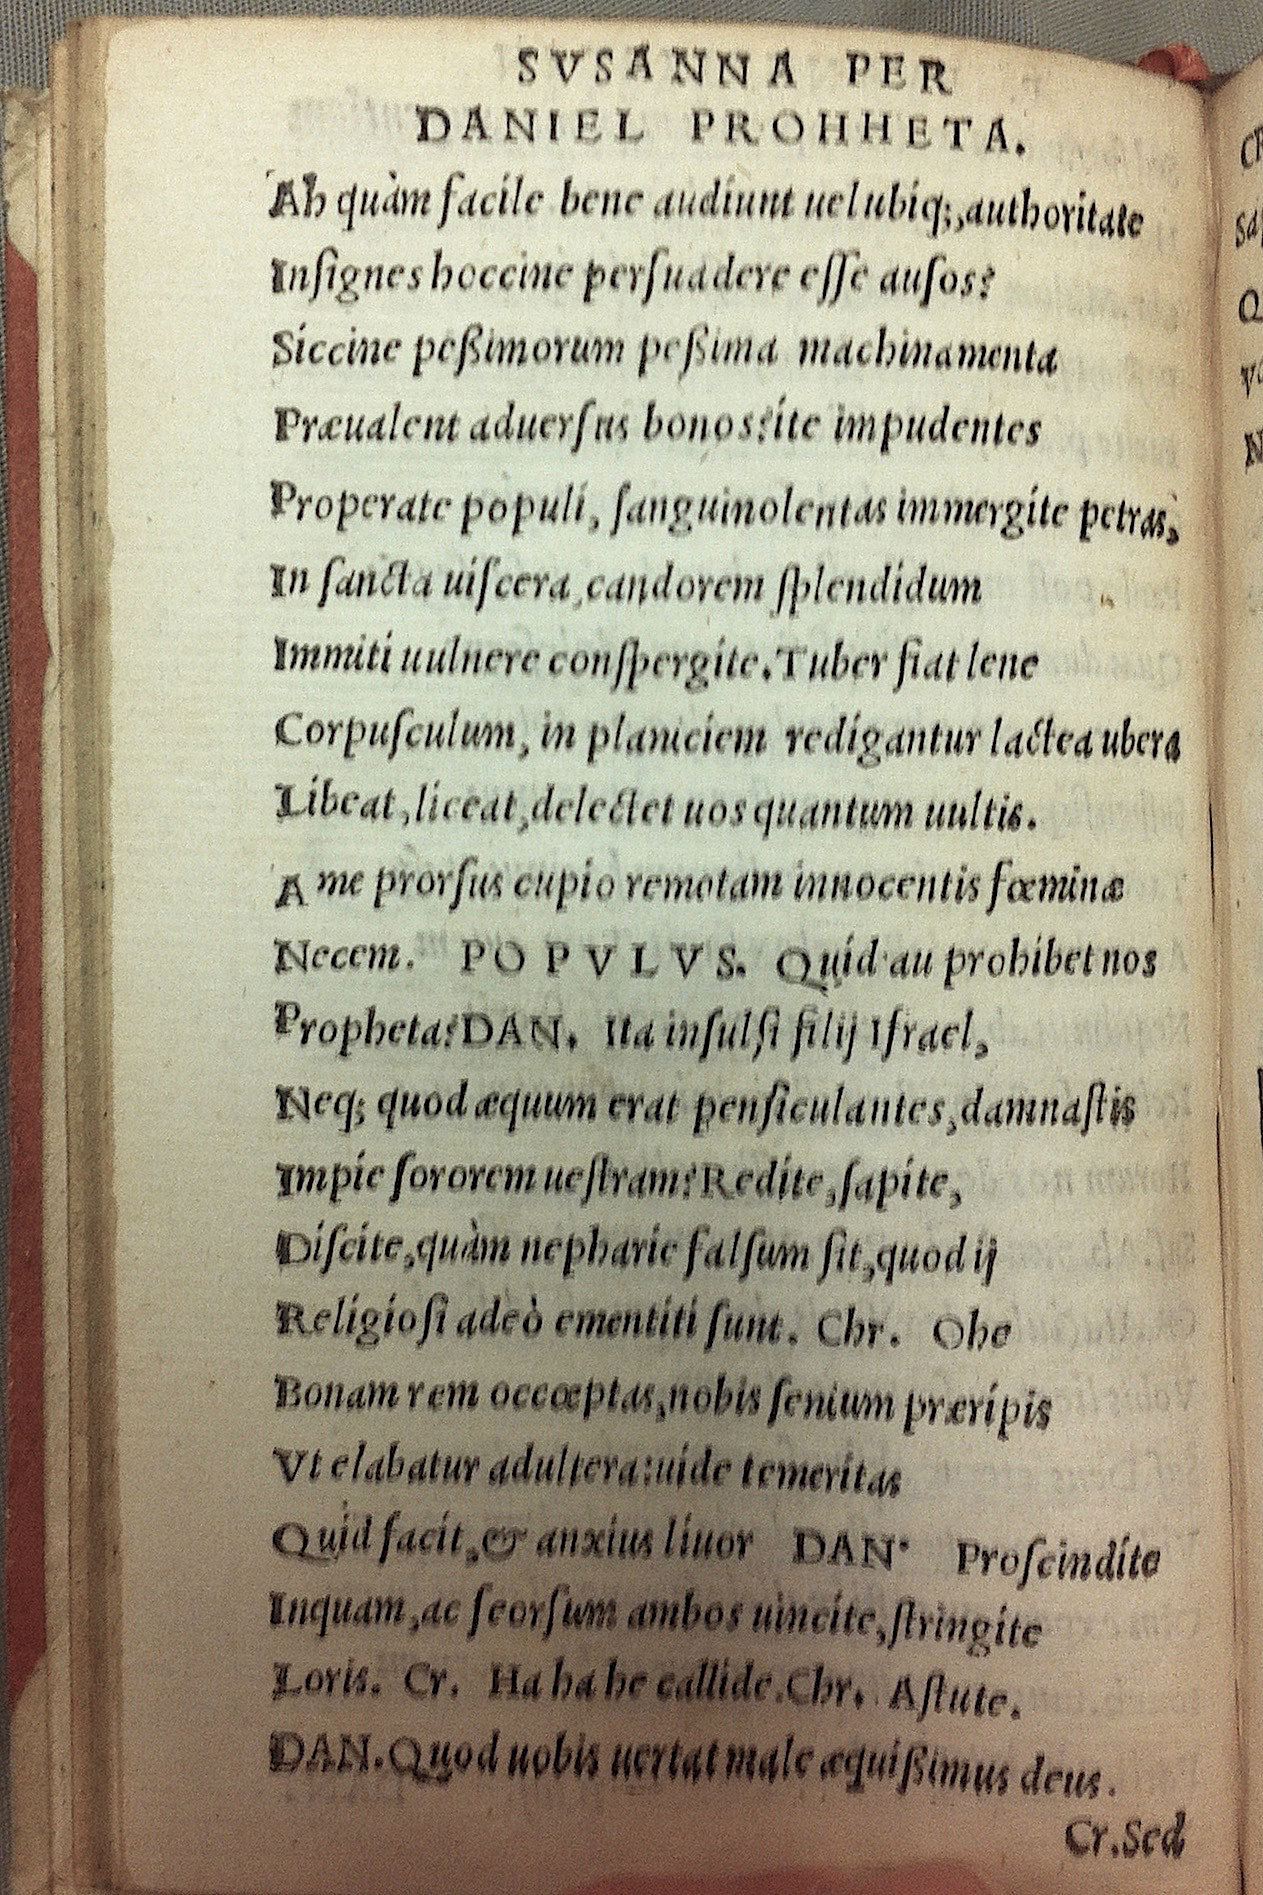 SVSANNA PER
DANIEL PROHHETA.
Ah quàm facile bene audiunt uel ubiq;,authoritate
Inſignes hoccine perſuadere eſſe auſos?
Siccine peßimorum peßima machinamenta
Præualent aduerſus bonos?ite impudentes
Properate populi, ſanguinolentas immergite petras,
In ſancta uiſcera,candorem ſplendidum
Immiti uulnere conſpergite.Tuber fiat lene
Corpuſculum, in planiciem redigantur lactea ubera
Libeat,liceat,delectet uos quantum uultis.
A me prorſus cupio remotam innocentis fœminæ
Necem. POPVLVS. Quid au prohibet nos
Propheta?DAN. Ita inſulſi filij Iſrael,
Neq; quod æquum erat penſiculantes,damnaſtis
Impie ſororem ueſtram?Redite,ſapite,
Diſcite,quàm nepharie falſum ſit,quod ij
Religioſi adeò ementiti ſunt. Chr. Ohe
Bonam rem occœptas,nobis ſenium præripis
Vt elabatur adultera:uide temeritas
Quid facit,& anxius liuor DAN. Proſcindite
Inquam,ac ſeorſum ambos uincite,ſtringite
Loris. Cr. Ha ha he callide.Chr. Aſtute.
DAN.Quod uobis uertat male æquißimus deus.
Cr.Sed